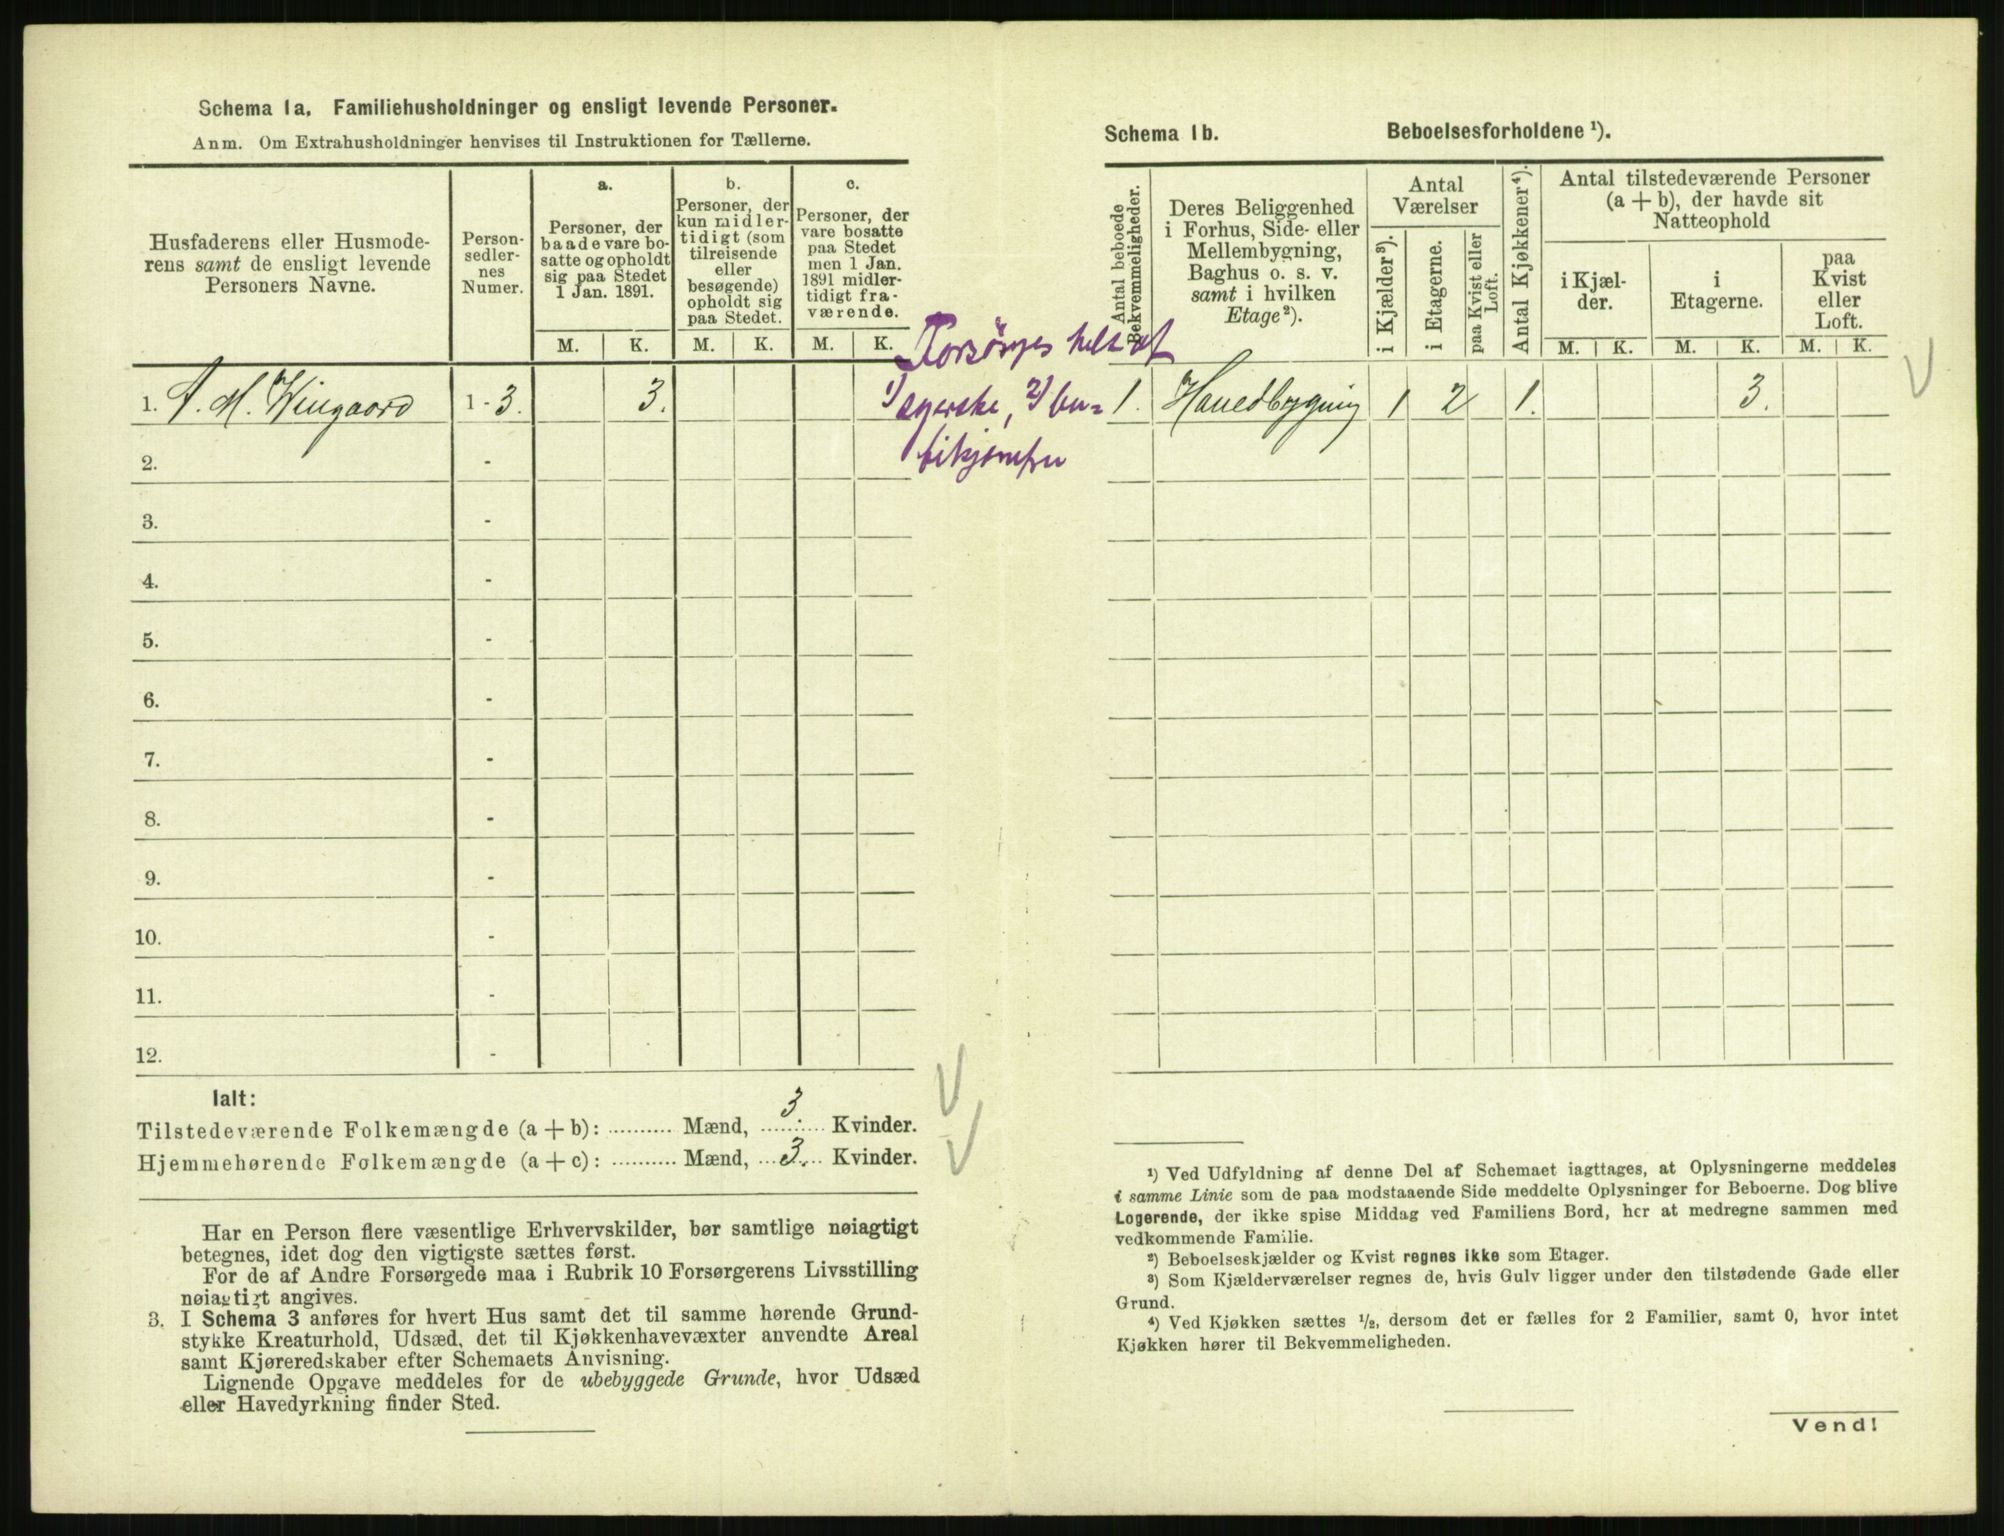 Schema 1a. Familiehusholdninger og ensligt levende Personer.
Anm. Om Extrahusholdninger henvises til Instruktionen for Tællerne.
Husfaderens eller Husmode-
rens samt de ensligt levende
Personers Navne.
Person-
sedler-
nes
Numer.
a.
Personer, der
baade vare bo-
satte og opholdt
sig paa Stedet
1 Jan. 1891.
b.
Personer, der
kun midler-
tidigt (som
tilreisende
eller
besøgende)
opholdt sig
paa Stedet.
c.
Personer, der
vare bosatte
paa Stedet
men 1 Jan.
1891 midler-
tidigt fra-
værende.
M. K. M. K. M. K.
1. A. M. Wingaard 1 - 3. 3.
2. -
3. -
4. -
5. -
6. -
7. -
8. -
9. -
10. -
11. -
12. -
Forsörges helt af
1) syerske, 2) bu=
tikjomfru
Ialt:
Tilstedeværende Folkemængde (a + b): .......... Mænd, 3. Kvinder.
Hjemmehørende Folkemængde (a + c): .......... Mænd, 3. Kvinder.
Har en Person flere væsentlige Erhvervskilder, bør samtlige nøiagtigt
betegnes, idet dog den vigtigste sættes først.
For de af Andre Forsørgede maa i Rubrik 10 Forsørgerens Livsstilling
nøiagtigt angives.
3. I Schema 3 anføres for hvert Hus samt det til samme hørende Grund-
stykke Kreaturhold, Udsæd, det til Kjøkkenhavevæxter anvendte Areal
samt Kjøreredskaber efter Schemaets Anvisning.
Lignende Opgave meddeles for de ubebyggede Grunde, hvor Udsæd
eller Havedyrkning finder Sted.
Schema 1b. Beboelsesforholdene ¹).
Antal beboede
Bekvemmeligheder.
Deres Beliggenhed
i Forhus, Side- eller
Mellembygning,
Baghus o. s. v.
samt i hvilken
Etage²).
Antal
Værelser
i Kjælder³).
i Etagerne.
paa Kvist eller
Loft.
Antal Kjøkkener⁴).
Antal tilstedeværende Personer
(a + b), der havde sit
Natteophold
i Kjæl-
der.
i
Etagerne.
paa
Kvist
eller
Loft.
M. K. M. K. M. K.
1. Hovedbygning 1 2 1. 3.
¹) Ved Udfyldning af denne Del af Schemaet iagttages, at Oplysningerne meddeles
i samme Linie som de paa modstaaende Side meddelte Oplysninger for Beboerne. Dog blive
Logerende, der ikke spise Middag ved Familiens Bord, her at medregne sammen med
vedkommende Familie.
²) Beboelseskjælder og Kvist regnes ikke som Etager.
³) Som Kjælderværelser regnes de, hvis Gulv ligger under den tilstødende Gade eller
Grund.
⁴) Ved Kjøkken sættes ½, dersom det er fælles for 2 Familier, samt 0, hvor intet
Kjøkken hører til Bekvemmeligheden.
Vend!